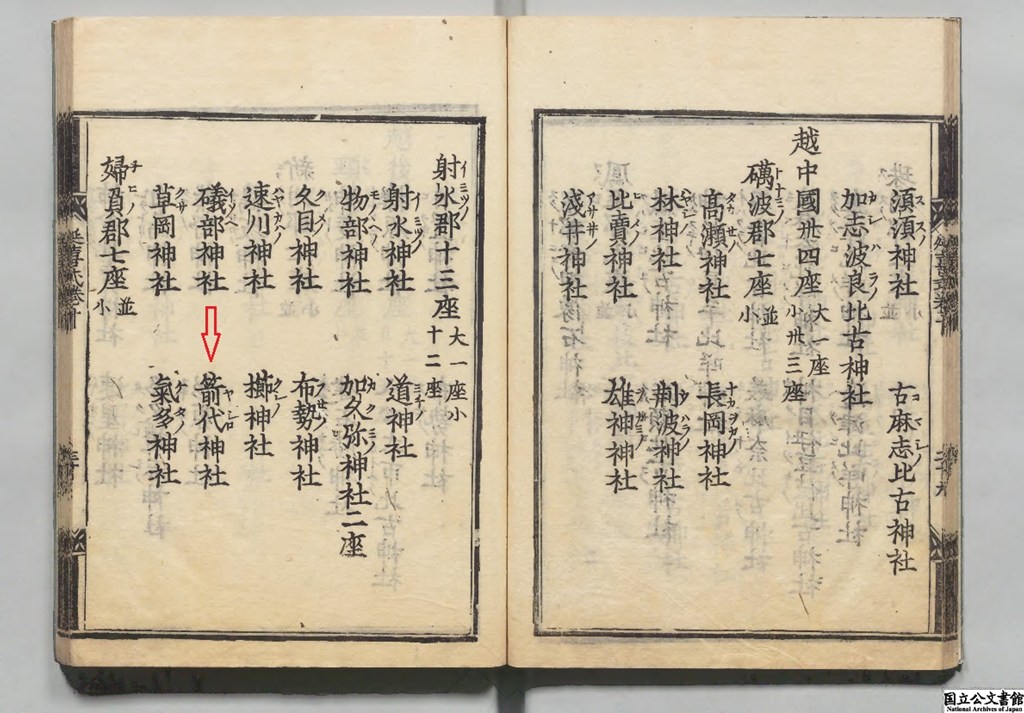 湏湏神社 古麻志比古神社
加志波良比古神社
越中國卅四座 大一座 小卅三座
礪波郡七座 並小
髙瀬神社 長岡神社
林神社 荆波神社
比賣神社 雄神神社
淺井神社
射水郡十三座 大一座小十二座
射水神社 道神社
物部神社 加久弥神社二座
久目神社 布勢神社
速川神社 櫛神社
礒部神社 箭代神社
草岡神社 氣多神社
婦負郡七座 並小
国立公文書館
National Archives of Japan